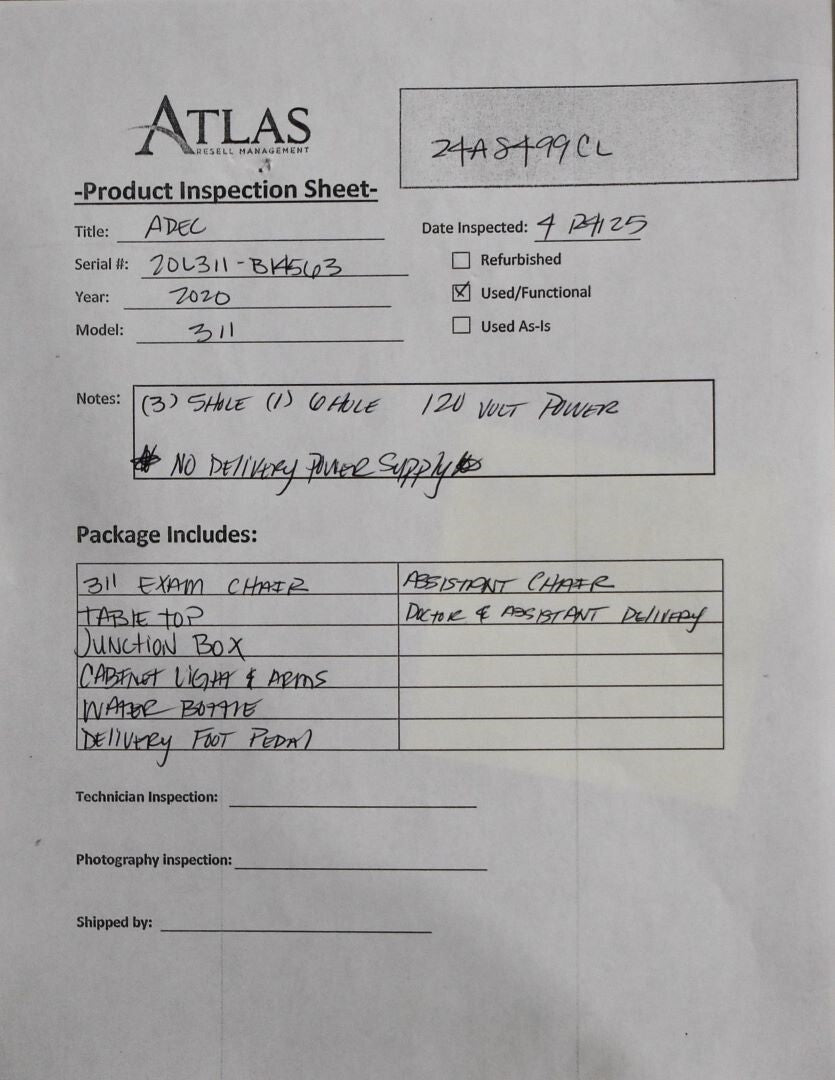 ATLAS
RESELL MANAGEMENT
24A8499CL
-Product Inspection Sheet-
Title: ADEC
Date Inspected: 4
Serial #: 20L311-B14563
Refurbished
Year: 2020
Used/Functional
Model: 311
Used As-Is
Notes: (3) 5 HOLE (1) 6 HOLE 120 VOLT POWER
* NO DELIVERY POWER SUPPLY *
Package Includes:
311 EXAM CHAIR
ASSISTANT CHAIR
TABLE TOP
DOCTOR & ASSISTANT DELIVERY
JUNCTION BOX
CABINET LIGHT & ARMS
WATER BOTTLE
DELIVERY FOOT PEDAL
Technician Inspection:
Photography inspection:
Shipped by: